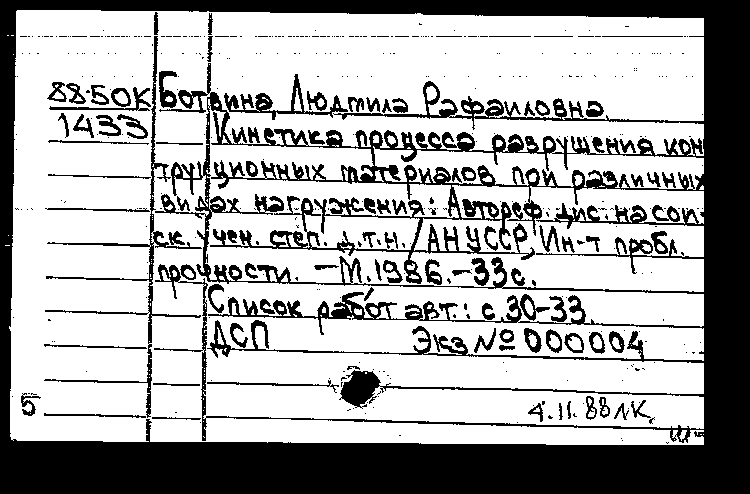 88-5ОК Ботвина, Людмила Рафаиловна.
1433 Кинетика процесса разрушения кон
трукционных материалов при различных
видах нагружения: Автореф. дис. на сои-
ск. учен. степ. д.т.н. / АН УССР, Ин-т пробл.
прочности. – М. 1986. – 33 с.
Список работ авт.: с. 30-33.
ДСП Экз № 000004
5 4.11.88 ЛК.